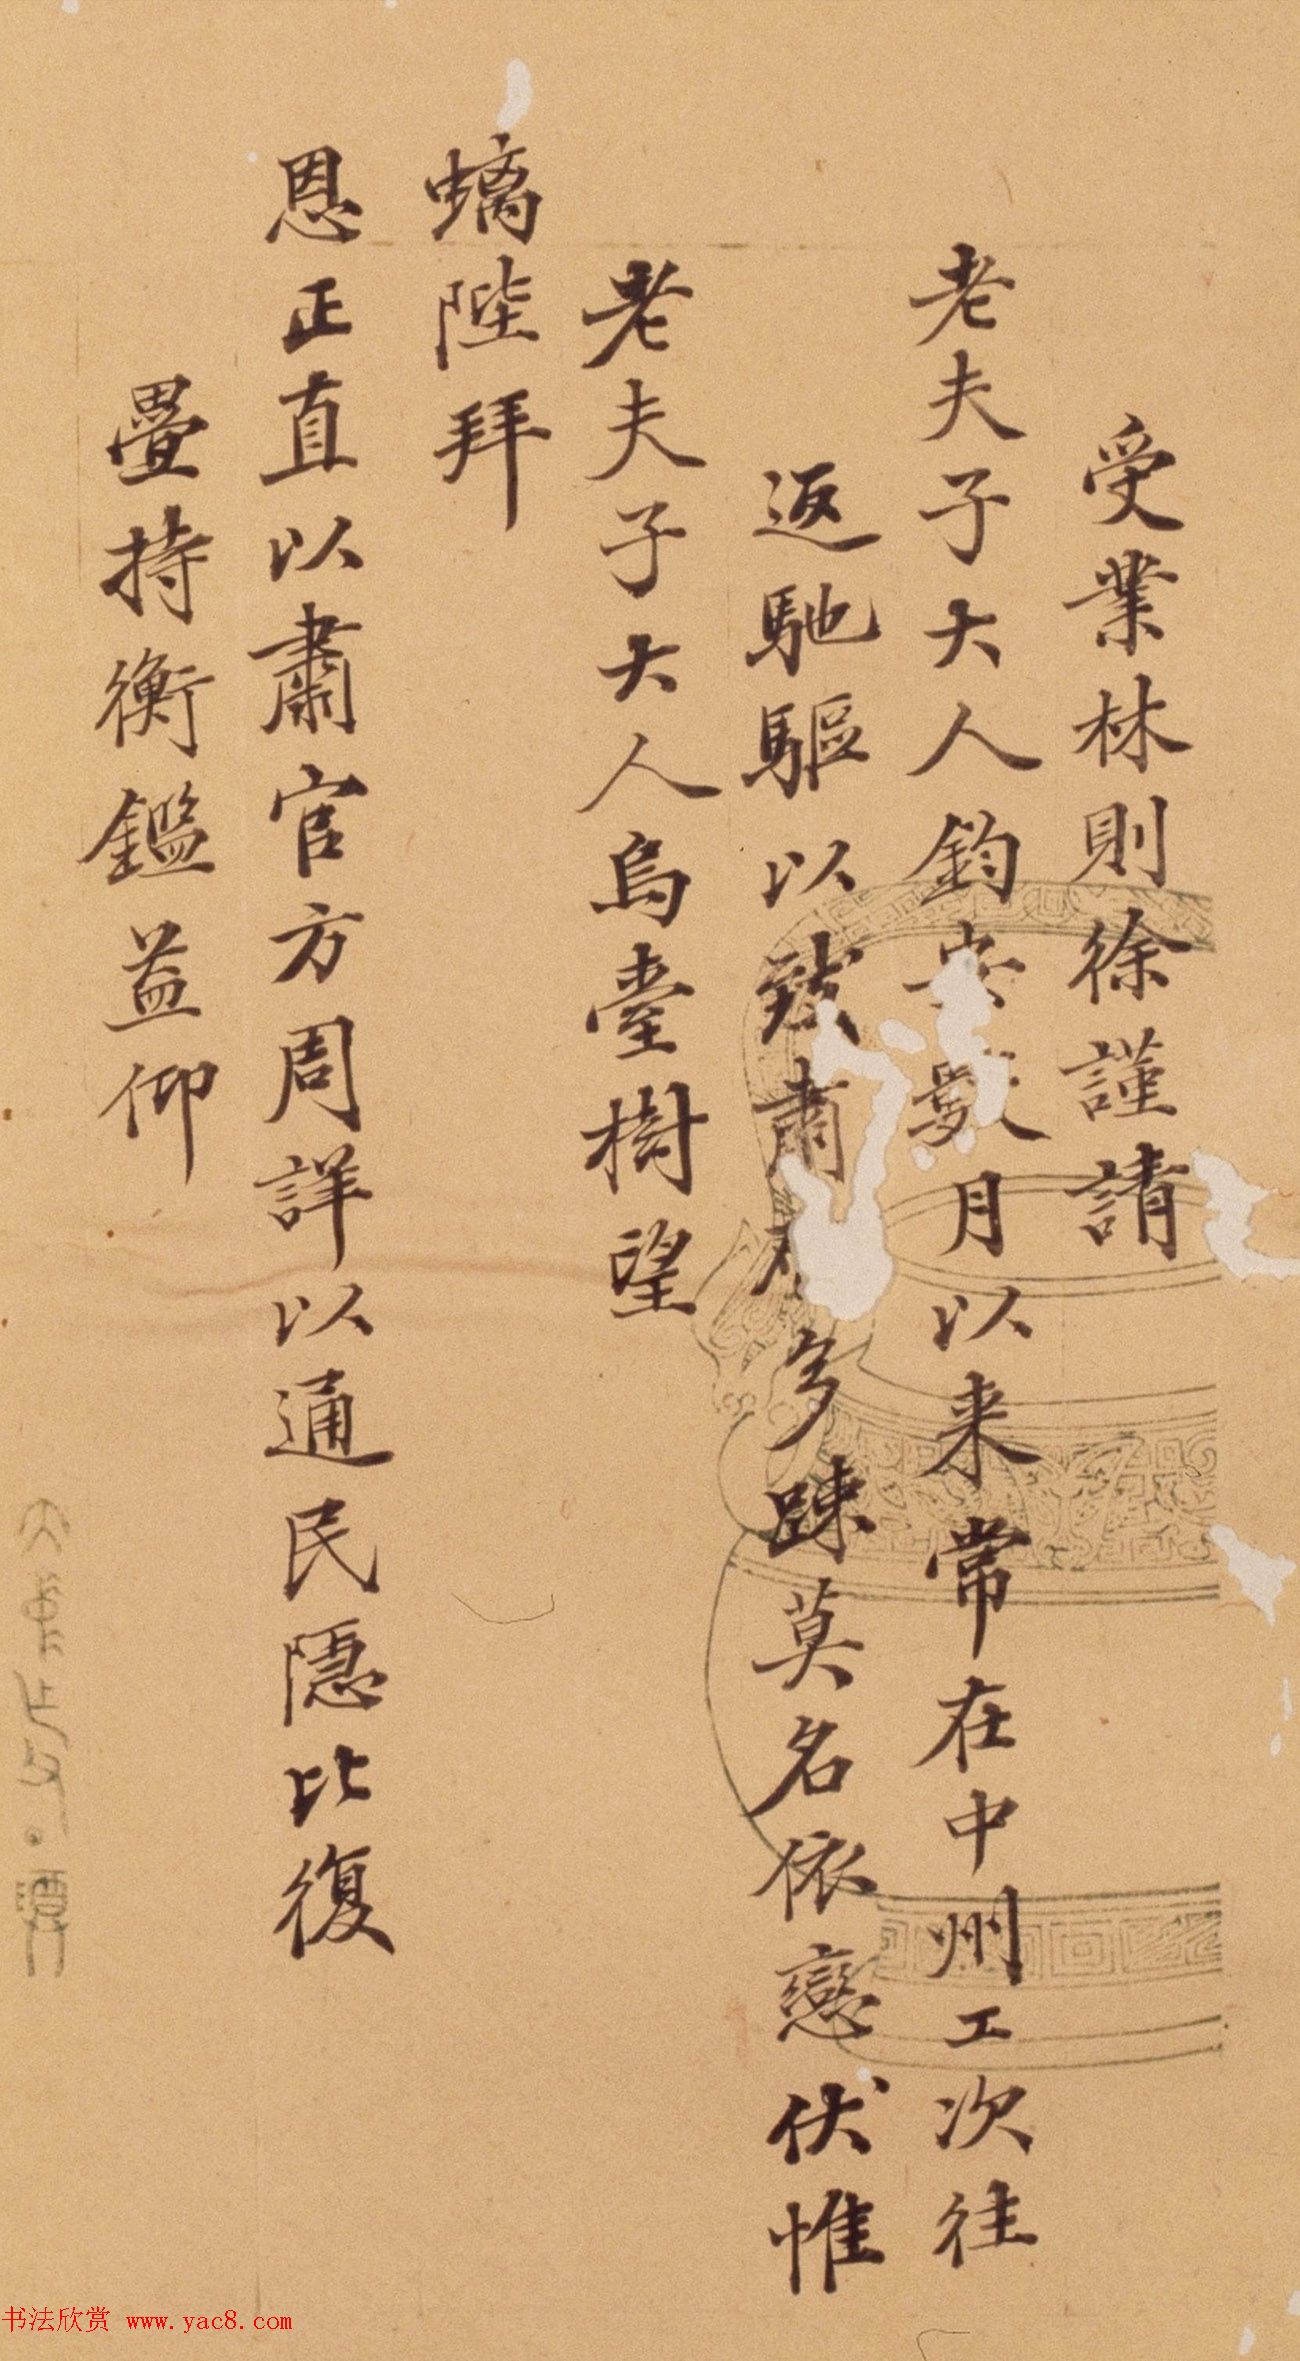 受業林則徐謹請
老夫子大人鈞安數月以来常在中州工次往
返馳驅以致肅 多踈莫名依戀伏惟
老夫子大人烏臺樹望
螭陛拜
恩正直以肅官方周詳以通民隱比復
疊持衡鑑益仰
书法欣赏 www.yac8.com